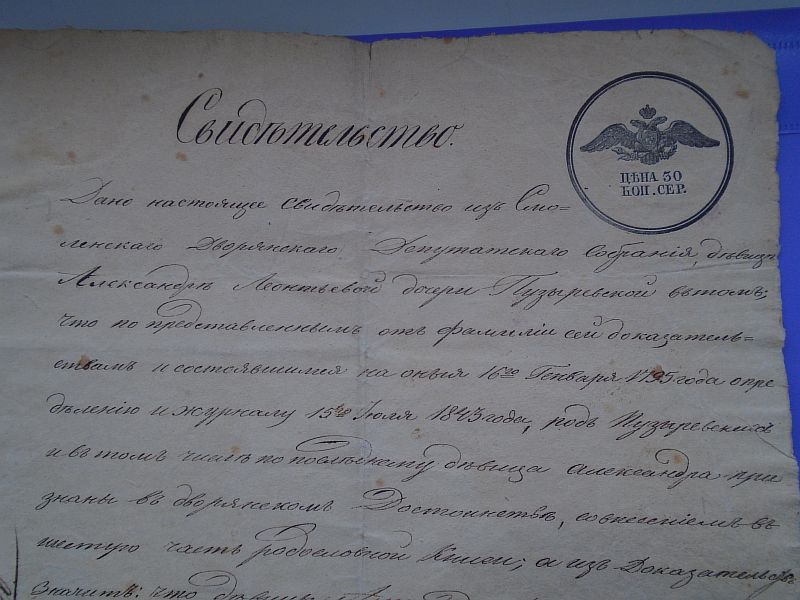 Свидѣтельство.
ЦѢНА 30
КОП. СЕР.
Дано настоящее свидѣтельство изъ Смо=
ленскаго Дворянскаго Депутатскаго Собранія, дѣвицѣ
Александрѣ Леонтьевой дочери Пузыревской въ томъ;
что по представленнымъ отъ фамиліи сей доказатель=
ствамъ и состоявшимся на оныя 16го Генваря 1795 года опре
дѣленію и журналу 15го Іюля 1843 года, родъ Пузыревскихъ
и въ томъ числѣ по дѣвица Александра при
знаны въ дворянскомъ Достоинствѣ, со внесеніемъ въ
шестую часть родословной Книги; а изъ Доказательствъ
значитъ: что